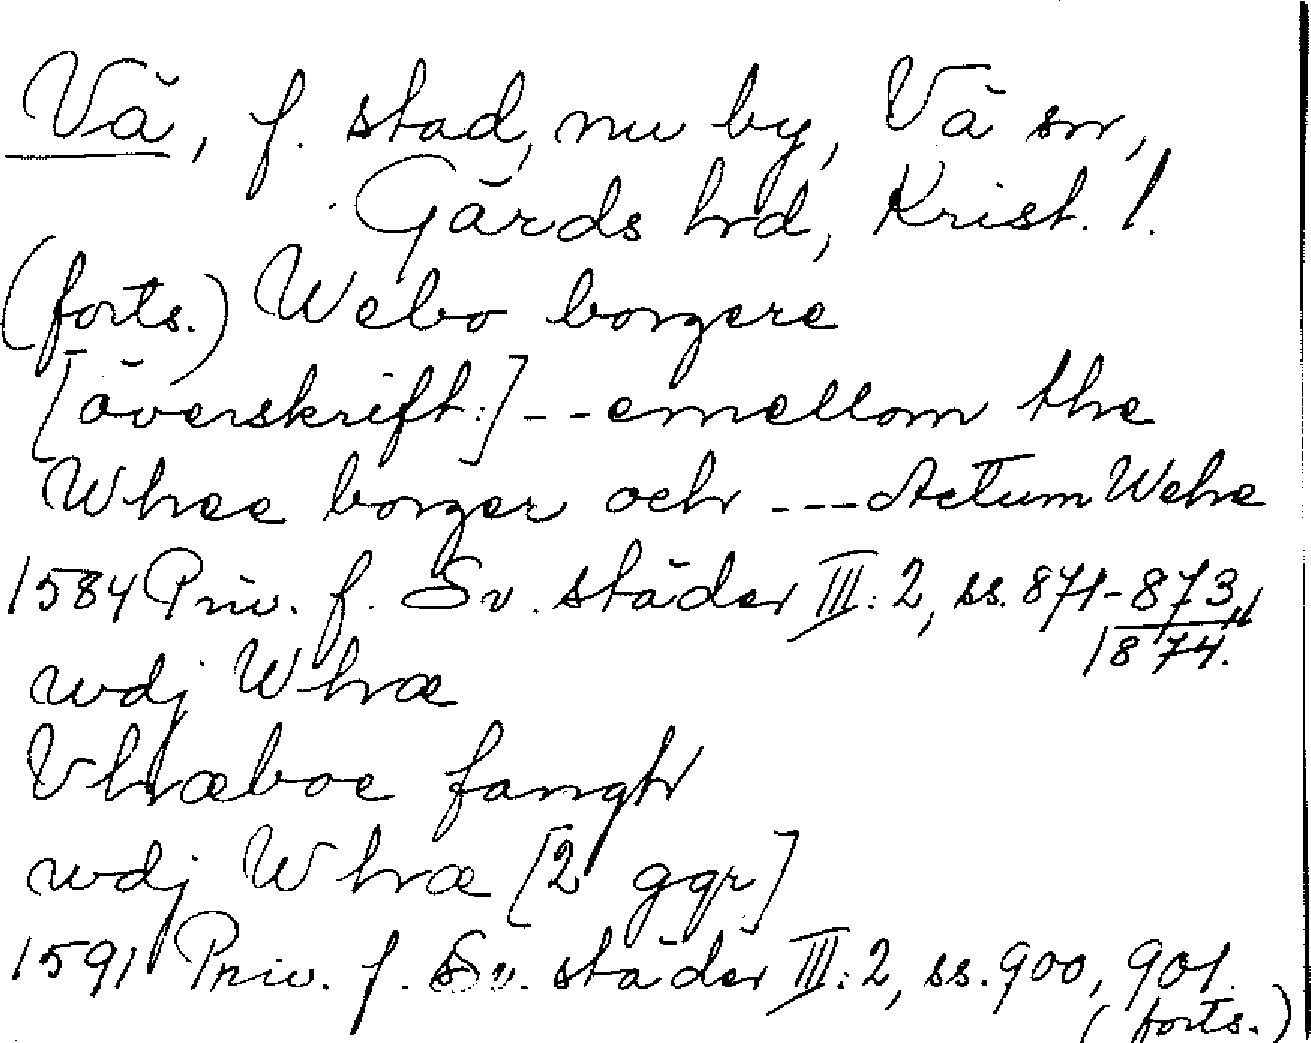 Vä, f. stad, nu by, Vä sn,
Gärds hd, Krist. l.
(forts.) Webo borgere
[överskrift:] -- emellom the
Whee borger och --- Actum Wehe
1584 Priv. f. Sv. städer III:2, ss. 871-873,
874.
wdj Whæ
Vhæboe fangh
wdj Whæ [2 ggr]
1591 Priv. f. Sv. städer III:2, ss. 900, 901.
(forts.)